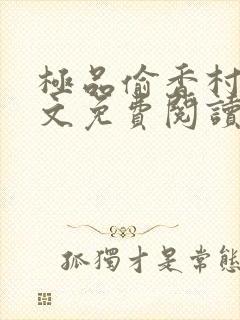 極品偷香村
文免費閱讀
孤獨才是常態